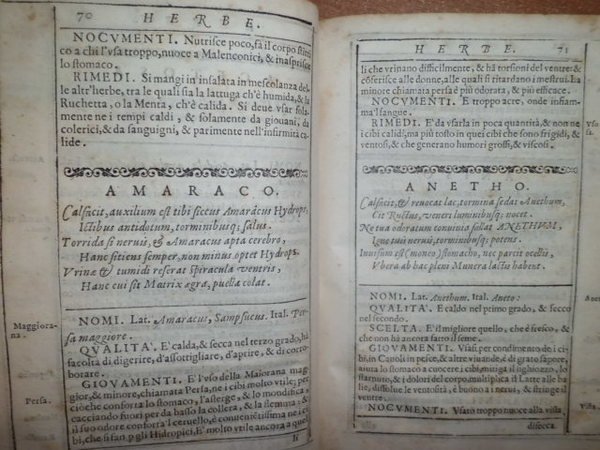 70 HERBE.
NOCVMENTI. Nutrisce poco, fà il corpo stiti
co a chi l'vsa troppo, nuoce a Malenconici, & inasprisce
lo stomaco.
RIMEDI. Si mangi in insalata in mescolanza del-
le altr'herbe, tra le quali sia la lattuga ch'è humida, & la
Ruchetta, o la Menta, ch'è calida. Si deue vsar sola-
mente ne i tempi caldi, & solamente da giouani, da
colerici, & da sanguigni, & parimente nell'infirmità ca
lide.
AMARACO.
Calfacit, auxilium est tibi siccus Amaracus Hydrops,
Ictibus antidotum, torminibusq; salus.
Torrida si neruis, & Amaracus apta cerebro,
Hanc sitiens semper, non minus optet Hydrops.
Vrinæ & tumidi referat spiracula ventris,
Hanc cui sit Matrix ægra, puella colat.
Maggiora-
na.
NOMI. Lat. Amaracus, Sampsucus. Ital. Per
sa maggiore.
QVALITA'. E' calda, & secca nel terzo grado, hà
facoltà di digerire, d'assottigliare, d'aprire, & di corro
borare.
Persa.
GIOVAMENTI. E' l'vso della Maiorana mag
gior, & minore, chiamata Persa, ne i cibi molto vtile; per
cioche conforta lo stomaco, l'asterge, & lo mondifica
cacciando fuori per da basso la collera, & la flemma: &
il suo odore conforta 'l ceruello, & contientissima ne i ci
bi, che si fan p gli Hidropici, E' molto vtile ancora a quel
li
HERBE. 71
li che vrinano difficilmente, & hà torsioni del ventre: &
coferisce alle donne, alle quali si ritardano i mestrui. La
minore chiamata persa è più odorata, & più efficace.
NOCVMENTI. E troppo acre, onde infiam-
ma'l sangue.
RIMEDI. E' da vsarla in poca quantità, & non ne
i cibi calidi, ma più tosto in quei cibi che sono frigidi, &
ventosi, & che generano humori grossi, & viscosi.
ANETHO.
Calfacit, & reuocat lac, tormina sedat Anethum,
Cit Ructus, veneri luminibusq; nocet.
Ne tua odoratum conuiuia fallat ANETHVM,
Igne tuui neruis, torminibusq; potens.
Inuisum est (moneo) stomacho, nec parcit ocellis,
Vbera ab hac plena Munera lactis habent.
NOMI. Lat. Anethum. Ital. Aneto.
QVALITA'. E' caldo nel primo grado, & secco
nel secondo.
SCELTA. E' il migliore quello, che è fresco, & che
non hà ancora fatto il seme.
GIOVAMENTI. Vsasi per condimento de i ci-
bi, in Cauoli in pesce, & altre viuande, è di grato sapore,
aiuta lo stomaco a cuocere i cibi, mitiga il sighiozzo, lo
starnuto, & i dolori del corpo, multiplica il Latte alle ba
lie, dissolue le ventosità, è buono a i nerui, & stringe
il ventre.
NOCVMENTI. Vsato troppo nuoce alla vista,
disecca